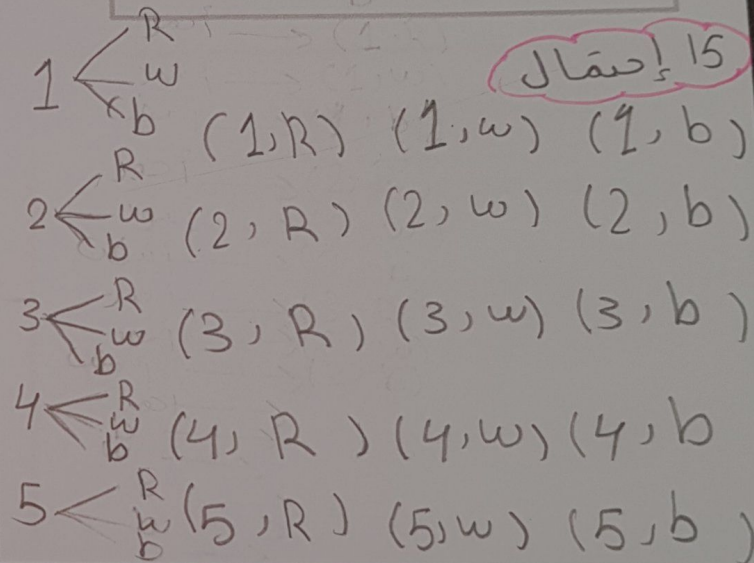 15 إحتمال
1 R
w
b (1, R) (1, w) (1, b)
2 R
w
b (2, R) (2, w) (2, b)
3 R
w
b (3, R) (3, w) (3, b)
4 R
w
b (4, R) (4, w) (4, b
5 R
w
b (5, R) (5, w) (5, b)